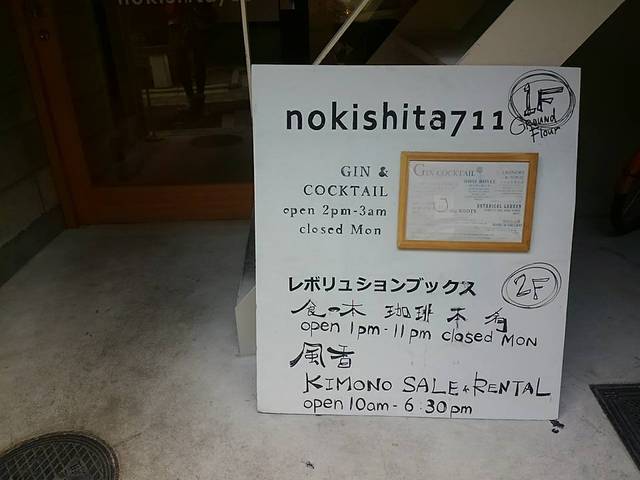 nokishita711
nokishita711
1F
Ground
Flour
GIN &
COCKTAIL
open 2pm-3am
closed Mon
GIN COCKTAIL
レボリュションブックス
2F
食の本 珈琲 本 有
open 1pm-11pm closed MON
風香
KIMONO SALE & RENTAL
open 10am-6:30pm